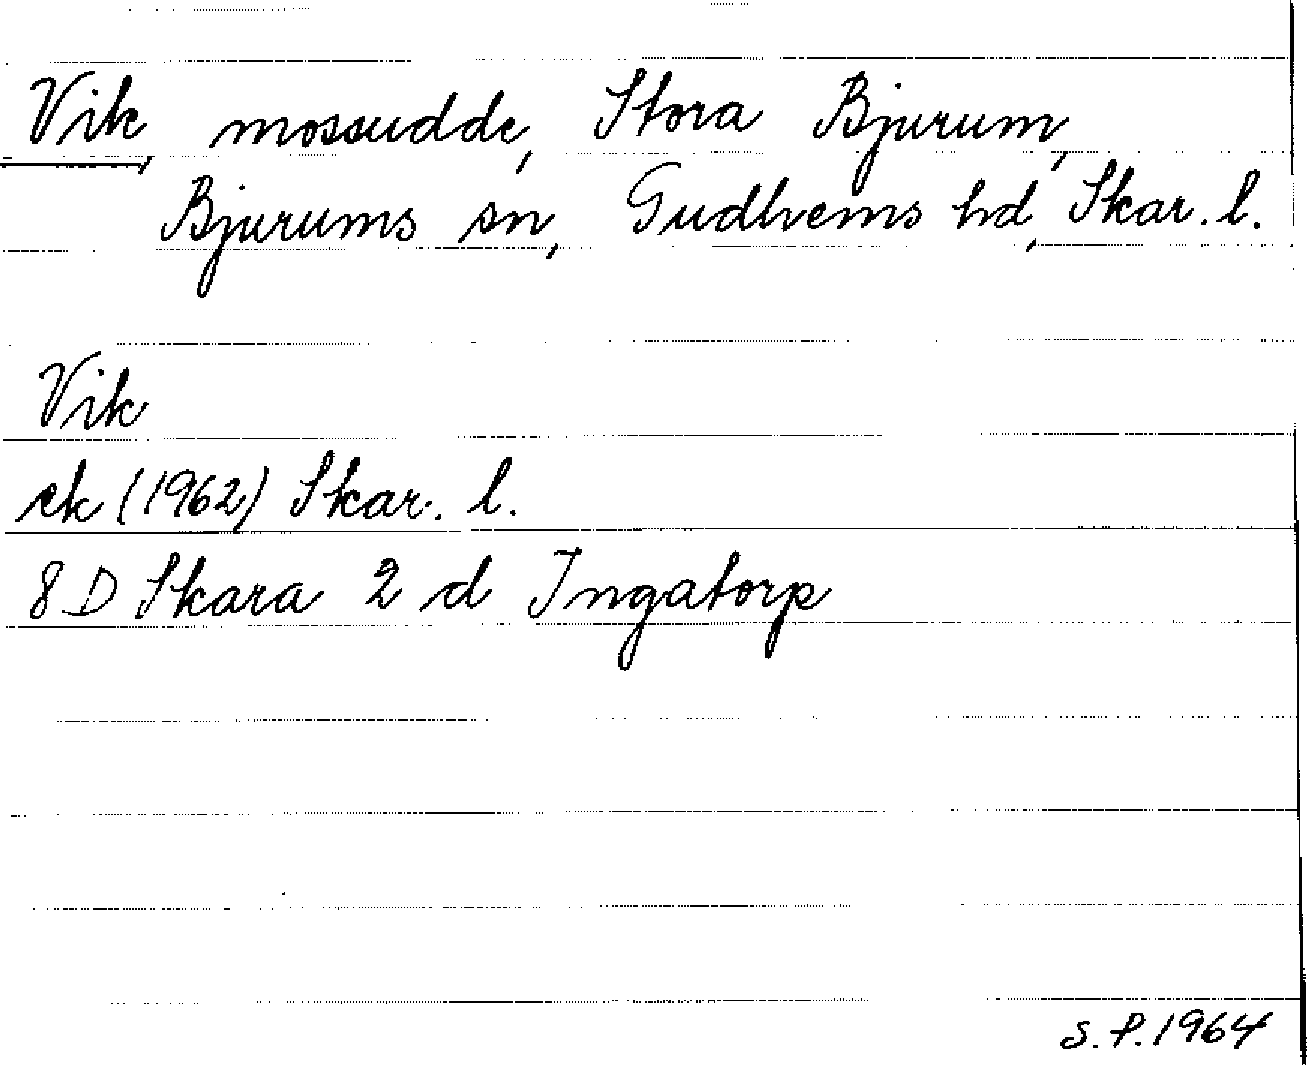 Vik, mossudde, Stora Bjurum,
Bjurums sn, Gudhems hd, Skar. l.
Vik
ek (1962) Skar. l.
8 D Skara 2 d Ingatorp
S.P. 1964